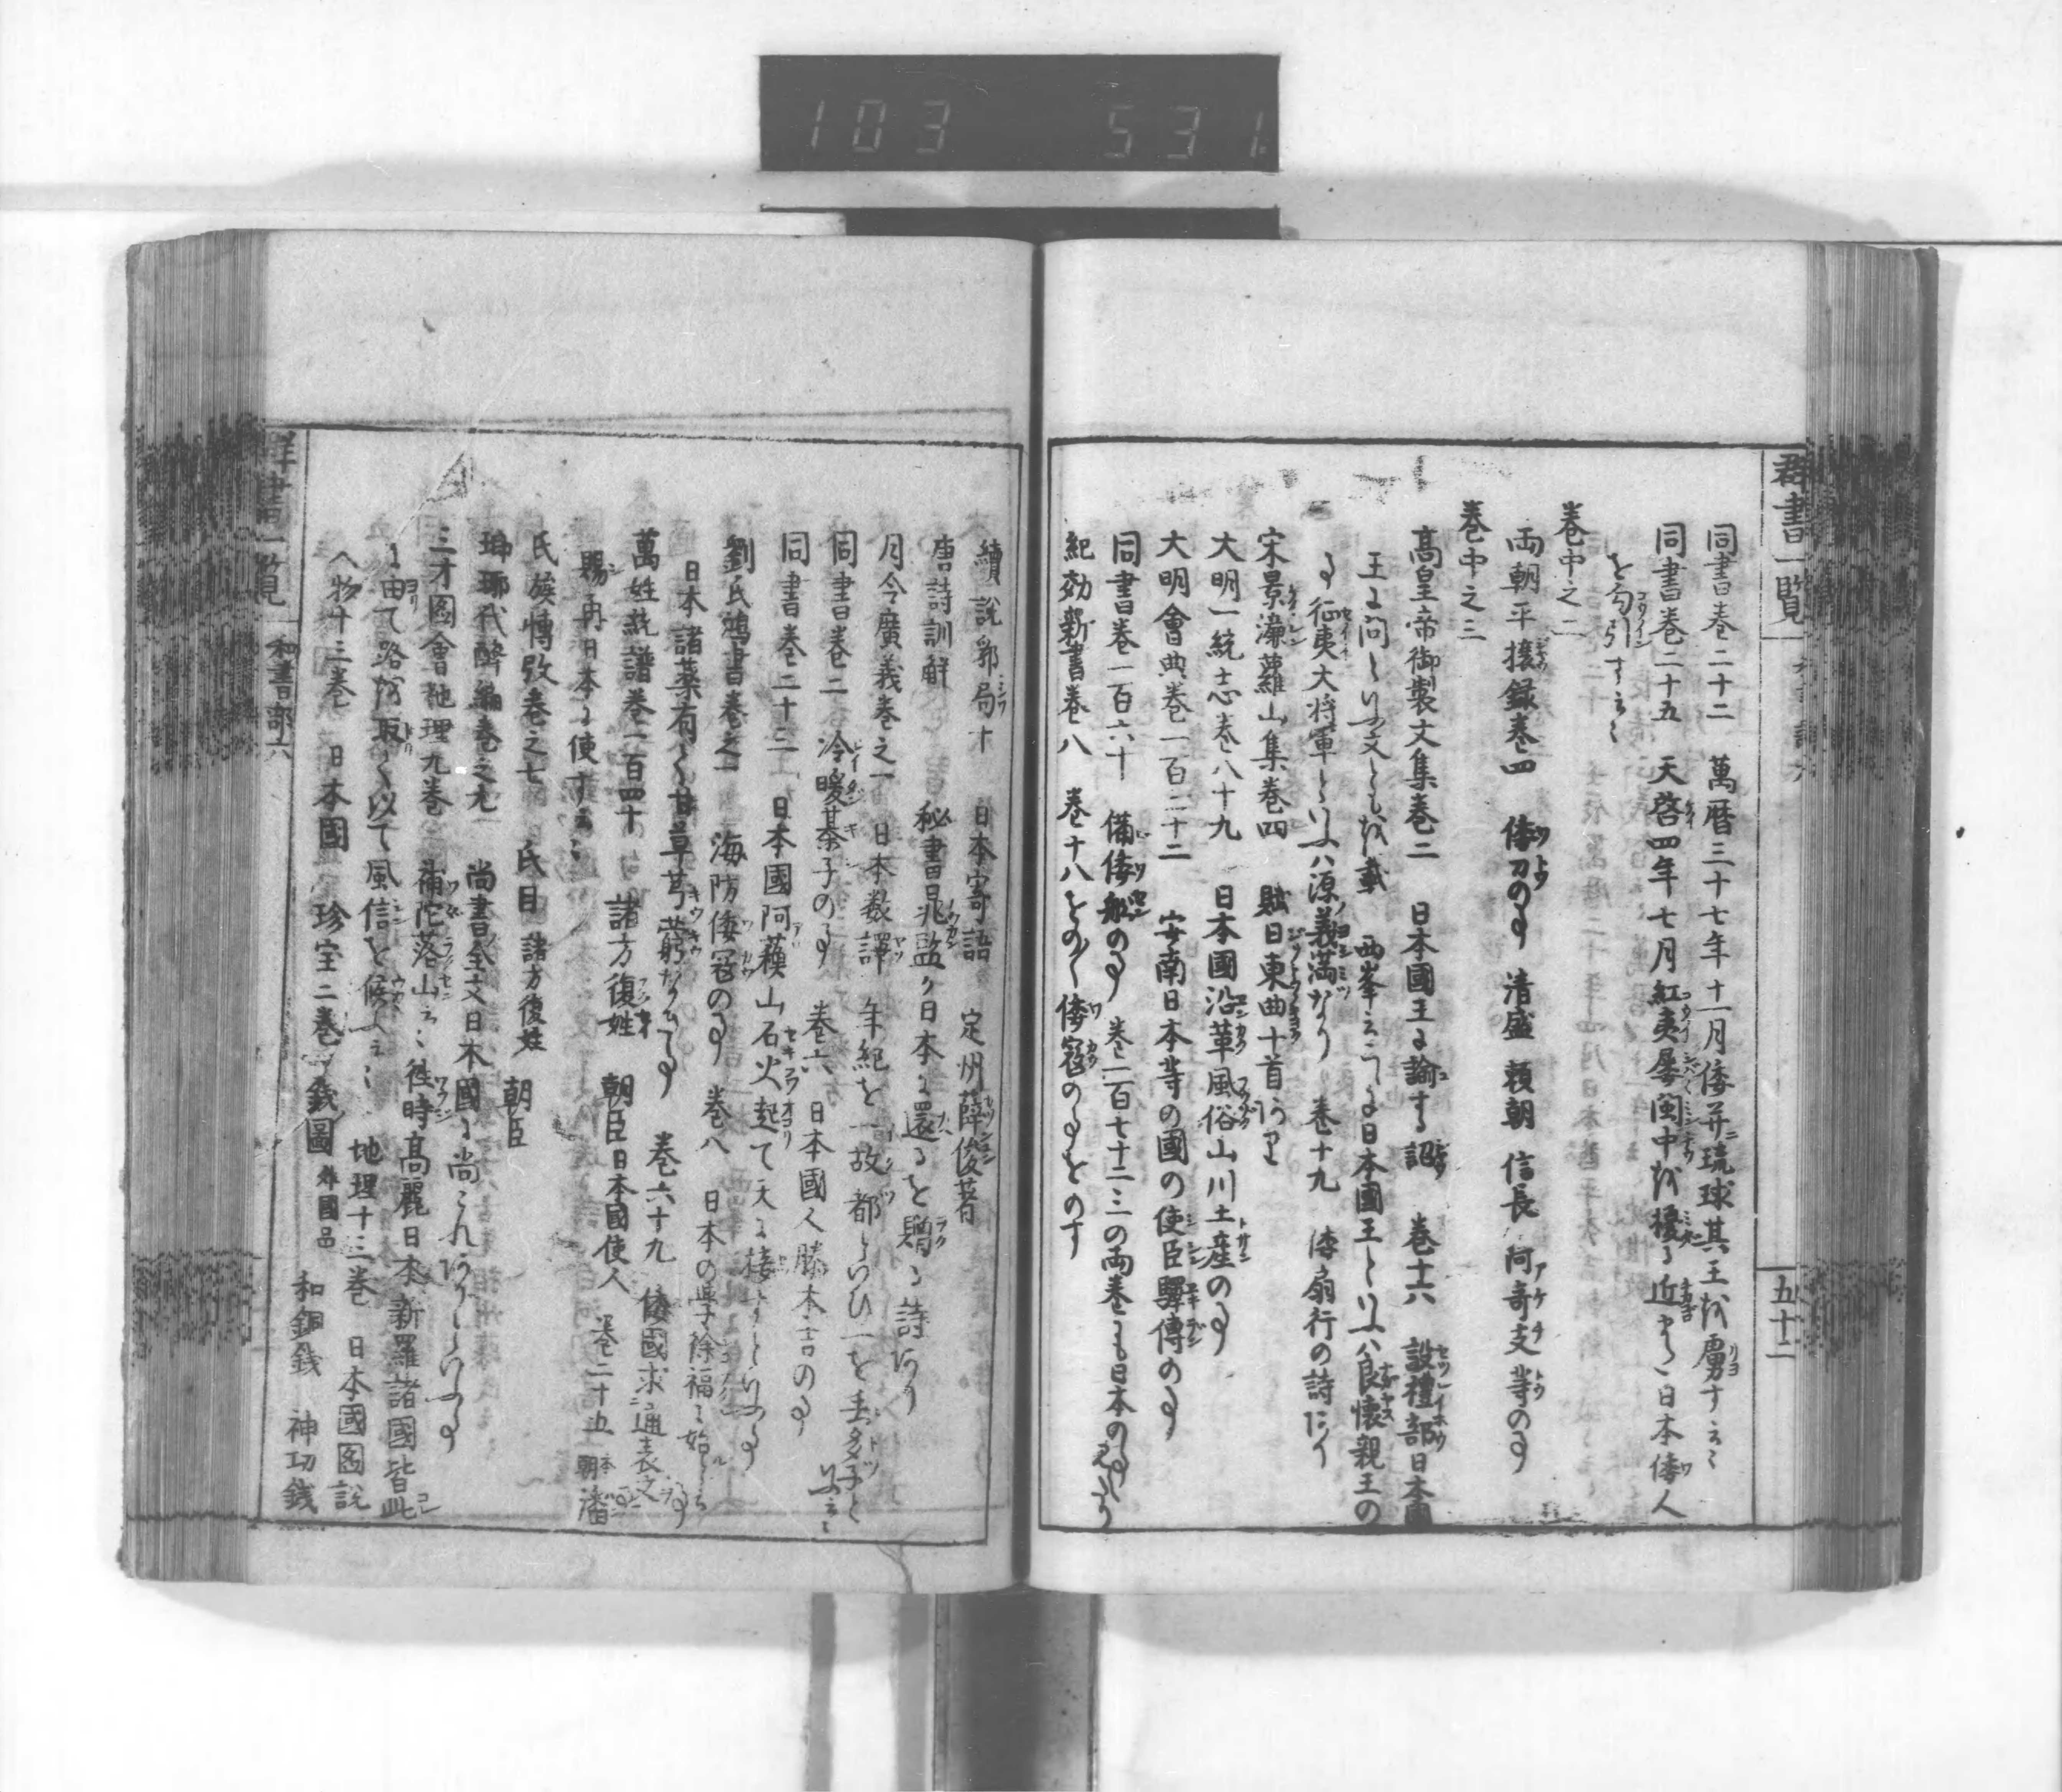 103 531
群書一覧
五十二
同書巻二十二 萬暦三十七年十一月倭并琉球其王を虜す云〻
同書巻二十五 天啓四年七月紅夷屡閩中を擾る近 き 日本倭人
を勾引す云〻
巻中之二
両朝平攘録巻四 倭刀の事 清盛 頼朝 信長 阿奇支 等の事
巻中之三
髙皇帝御製文集巻二 日本國王に諭す詔 巻十六 設禮部日本國
王に問といふ文ともを載 西峯云こゝに日本國王といふハ良懐親王の
事征夷大将軍といふハ源義満なり 巻十九 倭扇行の詩あり
宋景濂蘿山集巻四 賦日東曲十首あり
大明一統志巻八十九 日本國沿革風俗山川土産の事
大明會典巻一百二十二 安南日本等の國の使臣驛傳の事
同書巻一百六十 備倭船の事 巻二百七十二三の両巻にも日本の事
紀効新書巻八 巻十八をの〱倭寇の事をのす
續説郛局十 日本寄語 定州薛俊著
唐詩訓解 秘書晁監が日本に還るを贈る詩あり
月令廣義巻之一 日本数譯 年紀を一故都といひ一を丢多子と
いふ云〻
同書巻二 冷暖棊子の事 巻六 日本國人滕木吉の事
同書巻二十三 日本國阿蘇山石火起て天に接るといふ事
劉氏鴻書巻之一 海防倭寇の事 巻八 日本の學徐福に始る
日本諸薬有く甘草芎藭なきの事 巻六十九 倭國求通表文の事
萬姓統譜巻一百四十 諸方復姓 朝臣日本國使人 巻二十五 朝 潘
賜 再日本に使す云〻
氏族博攷巻之七 氏目 諸方復姓 朝臣
瑯琊代醉編巻之九 尚書全文日本國に尚これありといふ事
三才圖會地理九巻 補陀落山云〻徃時髙麗日本新羅諸國皆此
に由て路を取く以て風信を候ふ云〻 地理十三巻 日本國圖説
人物十三巻 日本國 珍宝二巻 銭圖 外國品 和銅銭 神功銭
群書一覧 和書部六